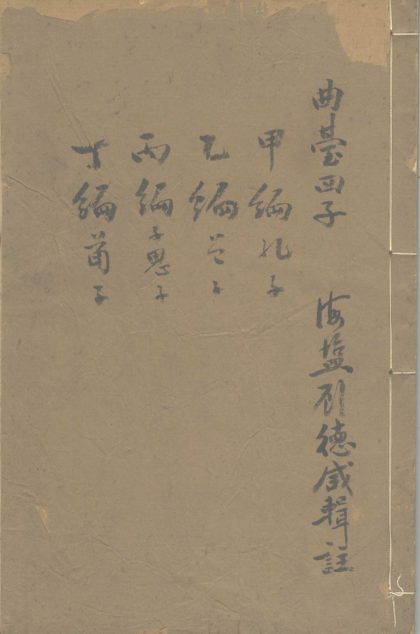 曲臺四子　海塩德威輯註
甲編孔子
乙編曾子
丙編子思子
丁編荀子